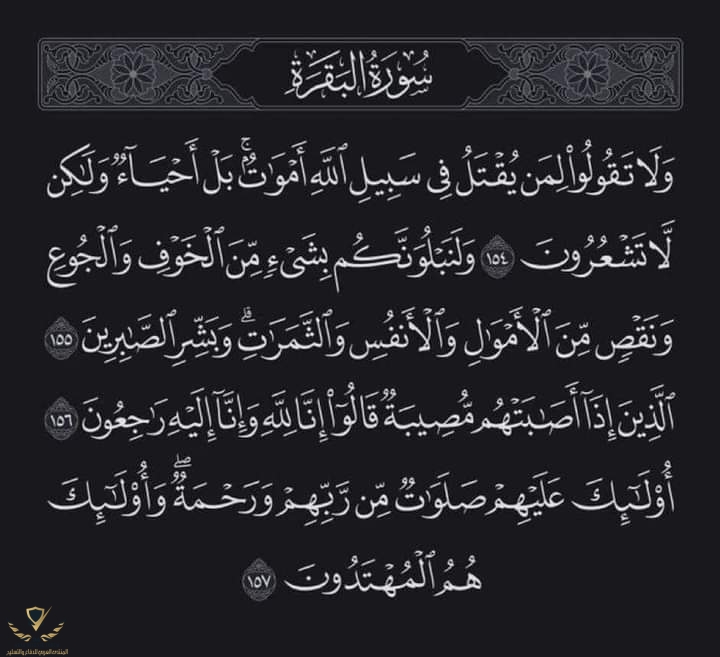 سُورَةُ البَقَرَةِ
وَلَا تَقُولُوا۟ لِمَن يُقْتَلُ فِى سَبِيلِ ٱللَّهِ أَمْوَٰتٌۢ ۚ بَلْ أَحْيَآءٌ وَلَـٰكِن
لَّا تَشْعُرُونَ ١٥٤ وَلَنَبْلُوَنَّكُم بِشَىْءٍ مِّنَ ٱلْخَوْفِ وَٱلْجُوعِ
وَنَقْصٍ مِّنَ ٱلْأَمْوَٰلِ وَٱلْأَنفُسِ وَٱلثَّمَرَٰتِ ۗ وَبَشِّرِ ٱلصَّـٰبِرِينَ ١٥٥
ٱلَّذِينَ إِذَآ أَصَـٰبَتْهُم مُّصِيبَةٌ قَالُوٓا۟ إِنَّا لِلَّهِ وَإِنَّآ إِلَيْهِ رَٰجِعُونَ ١٥٦
أُو۟لَـٰٓئِكَ عَلَيْهِمْ صَلَوَٰتٌ مِّن رَّبِّهِمْ وَرَحْمَةٌ ۖ وَأُو۟لَـٰٓئِكَ
هُمُ ٱلْمُهْتَدُونَ ١٥٧
المنتدى العربي للدفاع والتسليح